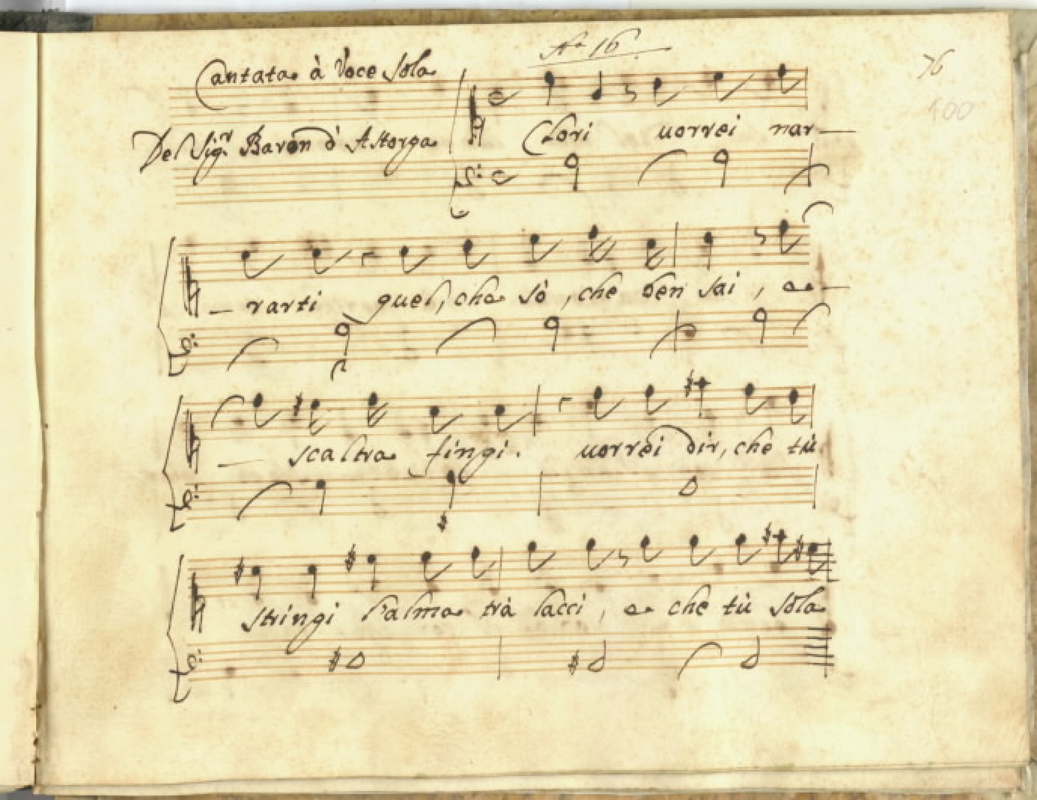 Nº 16
76
100
Cantata à Voce Sola
Del Sigr. Baron d'Astorga
Clori uorrei nar-
- rarti quel, che sò, che ben sai, e
- scaltra fingi. uorrei dir, che tù
stringi l'alma trà lacci, e che tù sola